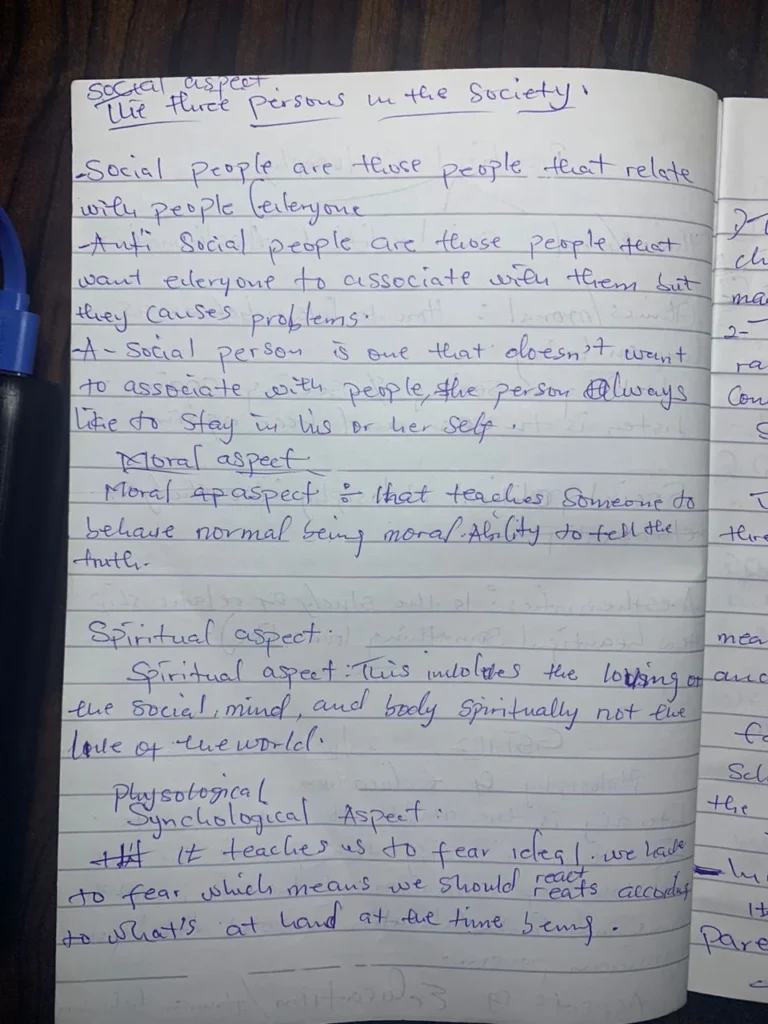 Social aspect
The three persons in the Society.
-Social people are those people that relate
with people (everyone
-Anti Social people are those people that
want everyone to associate with them but
they causes problems.
-A-Social person is one that doesn't want
to associate with people, the person always
like to stay in his or her self.
Moral aspect
Moral ap aspect ÷ that teaches someone to
behave normal being moral. Ability to tell the
truth.
Spiritual aspect:
Spiritual aspect: This involves the loving of
the social, mind, and body spiritually not the
love of the world.
Physological
Synchological Aspect:
It teaches us to fear ideal. we have
to fear which means we should
react
reats according
to what's at hand at the time being.
2-
ch
ma
2-
ra
Con
S
thre
mea
and
fo
Scl
the
It
Pare